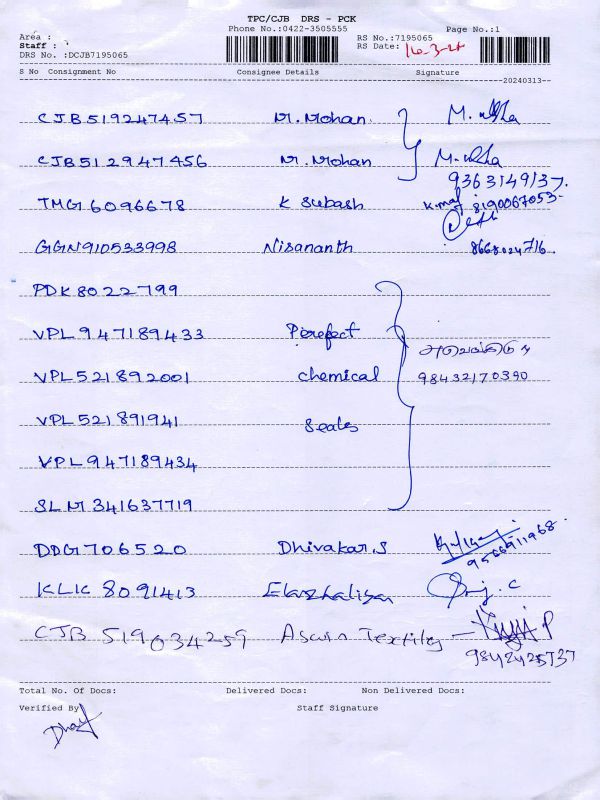 TPC/CJB DRS - PCK
Phone No.:0422-3505555
Area :
Staff :
DRS No. :DCJB7195065
RS No.:7195065
RS Date:
Page No.:1
S No Consignment No Consignee Details Signature
20240313
CJB519247457 M. Mohan
CJB512947456 M. Mohan
9363149137.
TMG6096678 K Subash 8190067053
GGN910533998 Nisananth 8668024716
PDK8022799
VPL947189433 Perefect
VPL521892001 chemical 98432170390
VPL521891941 Seales
VPL947189434
SLM341637719
DDG706520 Dhivakar.S 9566911968
KLK 8091413
CJB 519034259 Aswin Textiles
9842425737
Total No. Of Docs: Delivered Docs: Non Delivered Docs:
Verified By Staff Signature